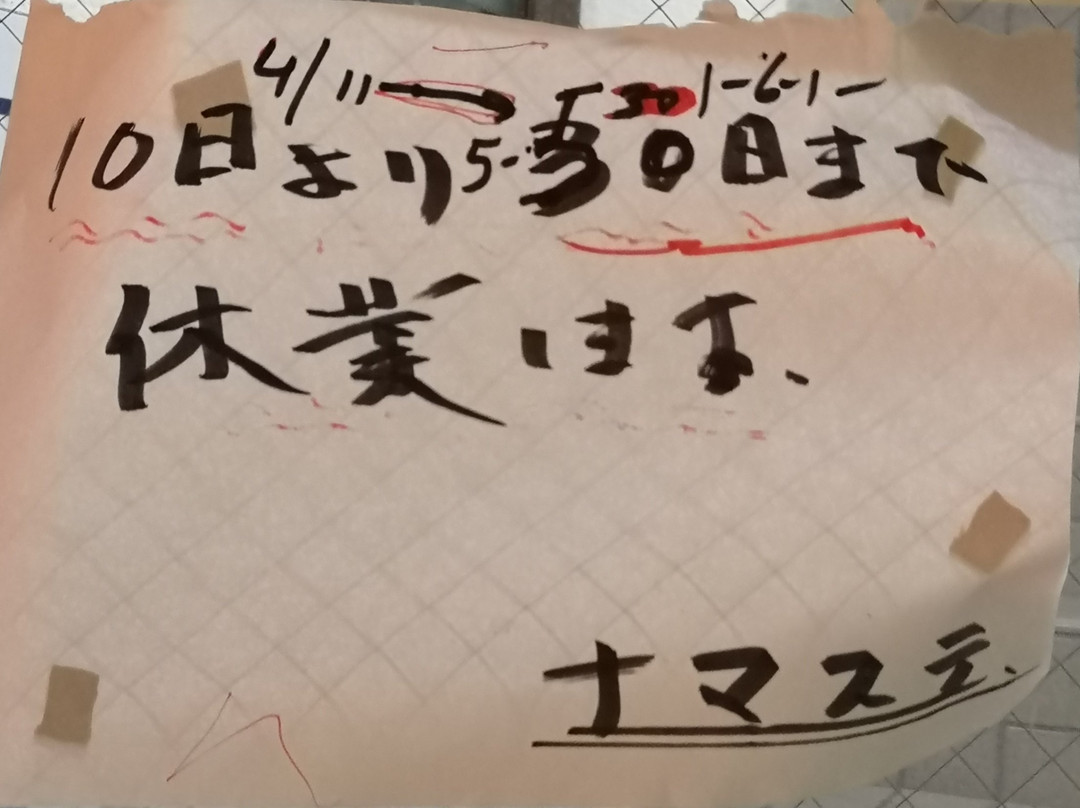 4/11 30 1-6-1-
10日より5-30日まで
休業します、
ナマステ.